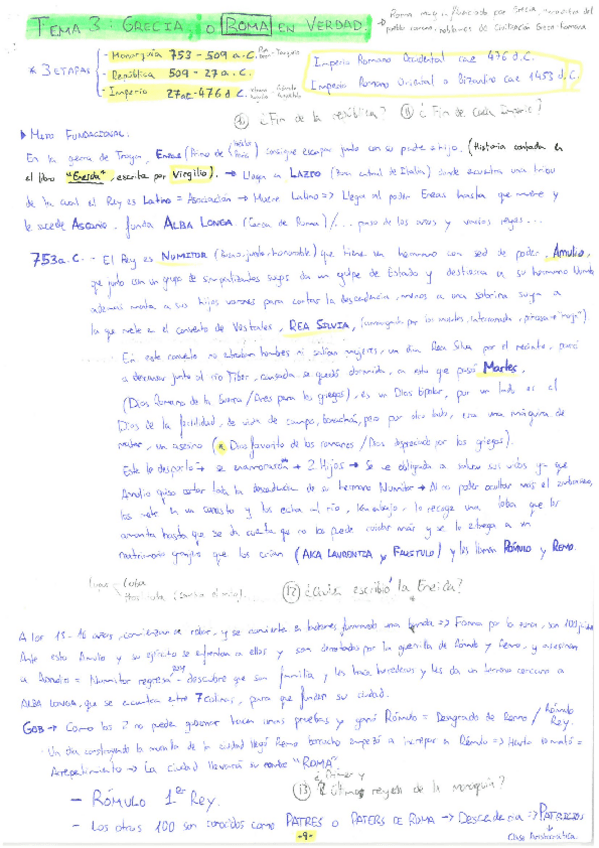 TEMA 3: GRECIA, o ROMA EN VERDAD.
→ Roma muy influenciado por Grecia,
pueblo romano, hablamos de Civilización Greco-Romana
* 3 ETAPAS
- Monarquía 753 - 509 a.C.
- República 509 - 27 a.C.
- Imperio 27 a.C - 476 d.C.
Imperio Romano Occidental cae 476 d.C.
Imperio Romano Oriental o Bizantino cae 1453 d.C.
¿Fin de la república? ¿Fin de Cada Imperio?
▶ MITO FUNDACIONAL:
En la guerra de Troya, ENEAS (Primo de Héctor Paris) consigue escapar junto con su padre e hijo. (Historia contada en
el libro "Eneida", escrita por Virgilio). → Llega a LAZIO (Zona central de Italia) donde encuentra una tribu
de la cual el Rey es LATINO = Asociación → Muere Latino => Llega al poder Eneas hasta que muere y
le sucede ASCANIO, funda ALBA LONGA (Cerca de Roma) /... paso de los años y varios reyes...
753 a.C. - El Rey es NUMITOR (Bueno, justo, honorable) que tiene un hermano con sed de poder, Amulio,
que junto con un grupo de simpatizantes suyos da un golpe de Estado y destierra a su hermano Numitor
además mata a sus hijos varones para cortar la descendencia, menos a una sobrina suya a
la que mete en el convento de Vestales, REA SILVIA,
En este convento no entraban hombres ni salían mujeres, un día Rea Silvia por el recinto,
a descansar junto al río Tiber, cansada se quedó dormida, en esto que pasó Martes,
(Dios Romano de la Guerra / Ares para los griegos), es un Dios bipolar, por un lado es el
Dios de la fertilidad, de vida de campo, borrachín, pero por otro lado, era una máquina de
matar, un asesino (* Dios favorito de los romanos / Dios despreciado por los griegos).
Este la despertó → se enamoraron → 2 Hijos → Se ve obligada a salvar sus vidas ya que
Amulio quiso cortar toda la descendencia de su hermano Numitor → Al no poder ocultar más el embarazo,
los mete en un canasto y los echa al río, río abajo, lo recoge una loba que los
amamanta hasta que se da cuenta que no los puede cuidar más y se lo entrega a un
matrimonio que los crían (AKA LAURENTIA y FAUSTULO) y les llaman RÓMULO y REMO.
lupa < loba
(12) ¿Quién escribió la Eneida?
A los 15-16 años, comienzan a robar, y se convierten en ladrones formando una banda => Famosa por la zona, son 100
Ante esto Amulio y su ejército se enfrentan a ellos y son derrotados por la guerrilla de Rómulo y Remo, y asesinan
a Amulio = Numitor regresa - descubre que son familia, y les hace herederos y les da un terreno cercano a
ALBA LONGA, que se encuentra entre 7 colinas, para que funden su ciudad.
GOB → Como los 2 no pueden gobernar hacen unas pruebas y ganó Rómulo = Desagrado de Remo / Rómulo Rey.
Un día construyendo la muralla de la ciudad llegó Remo borracho empezó a increpar a Rómulo => Harto lo mató =
Arrepentimiento → La ciudad llevará su nombre "ROMA".
(13) ¿Primer y Últimos reyes de la monarquía?
- RÓMULO 1er Rey.
- Los otros 100 son conocidos como PATRES o PATERS DE ROMA → Descendencia → PATRICIOS
Clase Aristocrática.
-9-